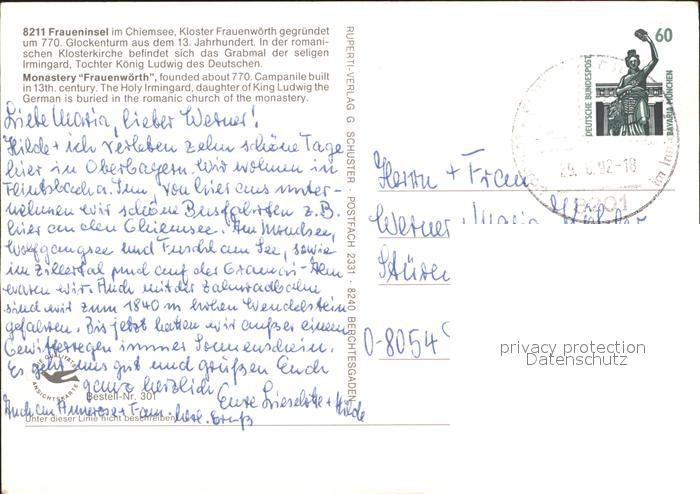 8211 Fraueninsel im Chiemsee, Kloster Frauenwörth gegründet
um 770. Glockenturm aus dem 13. Jahrhundert. In der romani-
schen Klosterkirche befindet sich das Grabmal der seligen
Irmingard, Tochter König Ludwig des Deutschen.
Monastery "Frauenwörth", founded about 770. Campanile built
in 13th. century. The Holy Irmingard, daughter of King Ludwig the
German is buried in the romanic church of the monastery.
Liebe Maria, lieber Werner!
Hilde + ich verleben zehn schöne Tage
hier in Oberbayern. Wir wohnen in
Flintsbach a. Inn, von hier aus unter-
nehmen wir schöne Busfahrten z.B.
hier an den Chiemsee. Am Mondsee,
Wolfgangsee und Fuschl am See, sowie
im Zillertal und auf der Alm
waren wir. Auch mit der Zahnradbahn
sind wir zum 1840 m hohen Wendelstein
gefahren. Bis jetzt hatten wir außer einem
Gewitterregen immer Sonnenschein.
Es geht uns gut und grüßen Euch
ganz herzlich
Eure Lieselotte + Hilde
Auch an Annerose + Fam. herzl. Gruß
DIE QUALITÄTS
ANSICHTSKARTE
Bestell-Nr. 301
Unter dieser Linie nicht beschreiben
RUPERTI-VERLAG G. SCHUSTER · POSTFACH 2331 · 8240 BERCHTESGADEN
60
DEUTSCHE BUNDESPOST
BAVARIA MÜNCHEN
6.92-18
8201
im Inntal
Herrn + Frau
Werner + Maria
O-8054
privacy protection
Datenschutz